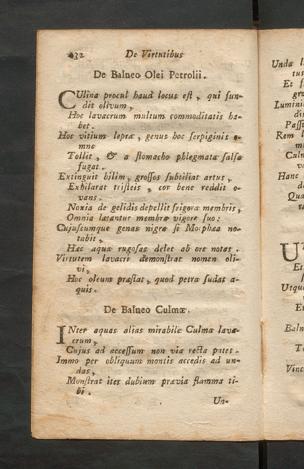 432 De Virtutibus
De Balneo Olei Petrolii.
CUlinæ procul haud locus est, qui fun-
dit olivum,
Hoc lavacrum multum commoditatis ha-
bet.
Hoc vitium lepræ, genus hoc serpiginis o-
mne
Tollit, & a stomacho phlegmata falsa
fugat.
Extinguit bilim, grossos subtiliat artus,
Exhilarat tristeis, cor bene reddit o-
vans.
Noxia de gelidis depellit frigora membris,
Omnia lavantur membra vigore suo:
Cujuscumque genas nigræ si Morphæa no-
tabit,
Hæc aqua rugosas delet ab ore notas.
Virtutem lavacri demonstrat nomen oli-
vi,
Hoc oleum præstat, quod petra sudat a-
quis.
De Balneo Culmæ.
INter aquas alias mirabile Culma lava-
crum,
Cujus ad accessum non via recta patet.
Immo per obliquum montis accedis ad un-
das,
Monstrat iter dubium prævia flamma ti-
bi.
Un-
Et
Et